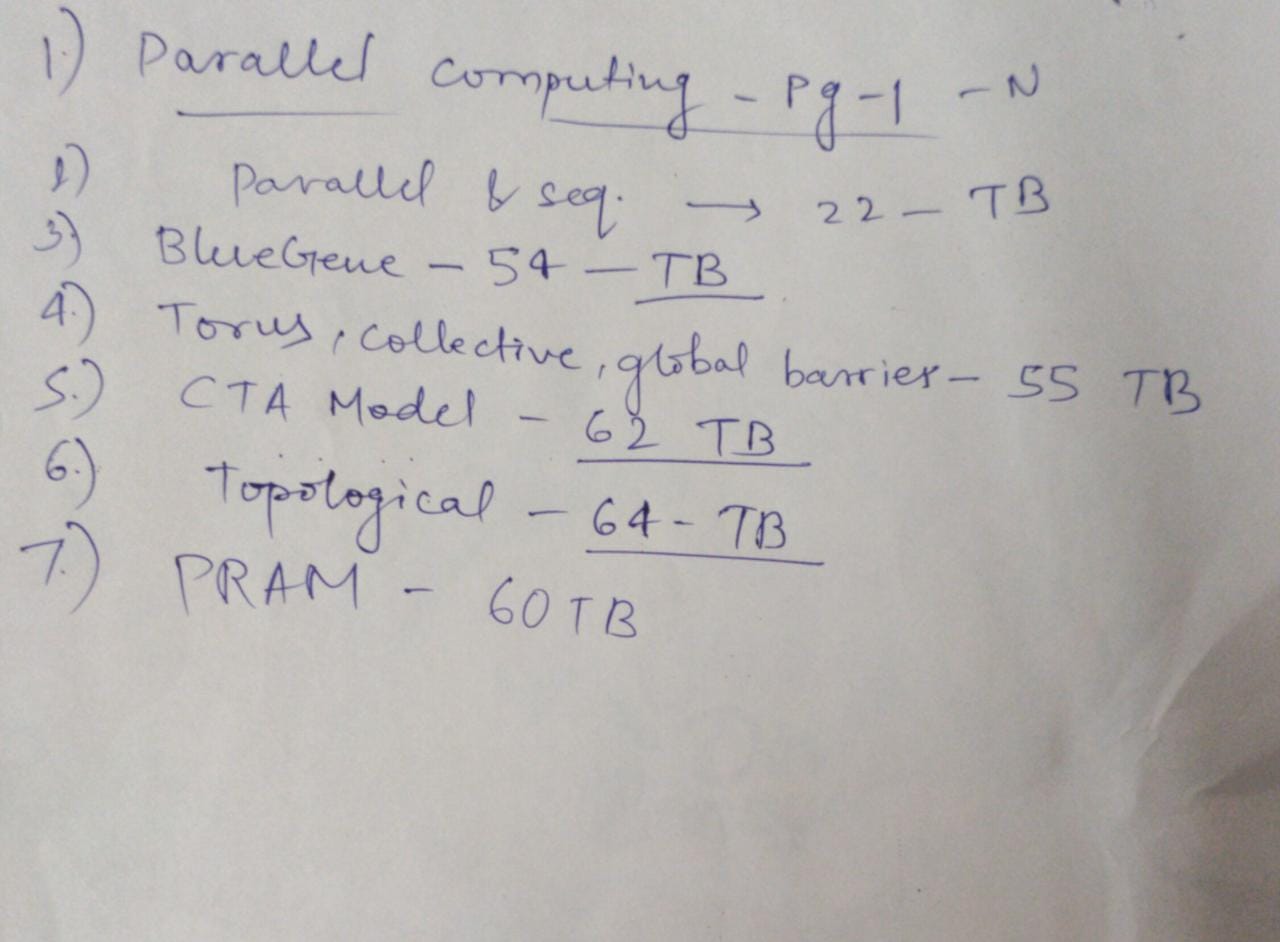 1.) Parallel computing - Pg-1 - N
2) Parallel & seq. → 22 - TB
3.) BlueGene - 54 - TB
4.) Torus, collective, global barrier - 55 TB
5.) CTA Model - 62 TB
6.) Topological - 64 - TB
7.) PRAM - 60 TB